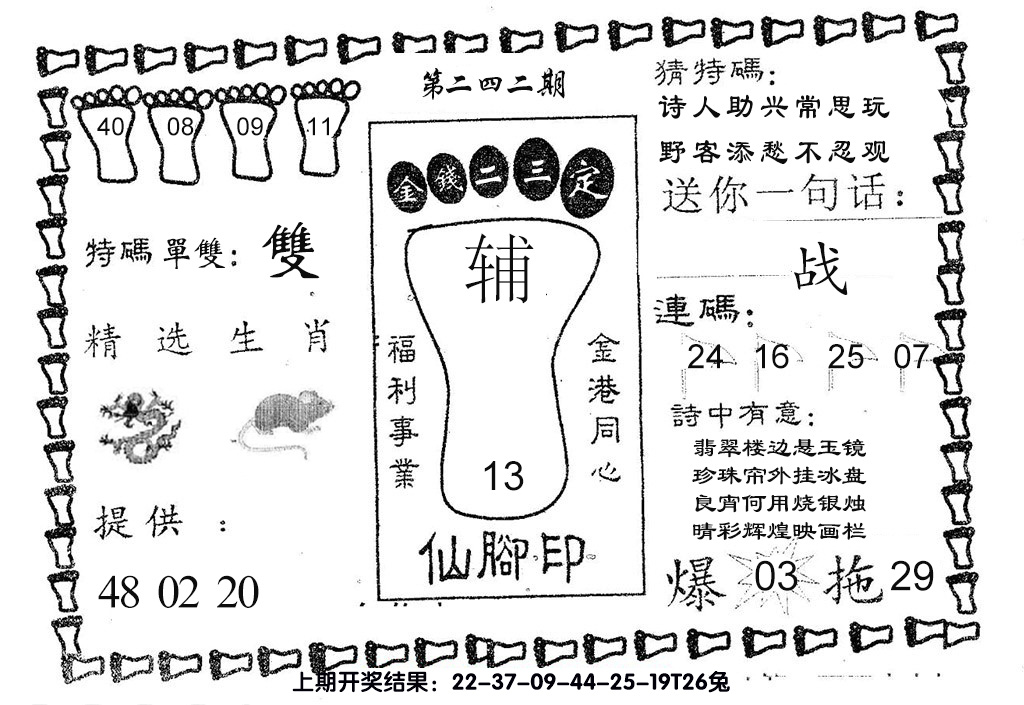 第二四二期
40 08 09 11
特碼單雙：雙
精选生肖
提供：
48 02 20
金錢二三定
辅
福利事業
金港同心
13
仙腳印
猜特碼：
诗人助兴常思玩
野客添愁不忍观
送你一句话：
战
連碼：
24 16 25 07
詩中有意：
翡翠楼边悬玉镜
珍珠帘外挂冰盘
良宵何用烧银烛
晴彩辉煌映画栏
爆 03 拖 29
上期开奖结果：22-37-09-44-25-19T26兔